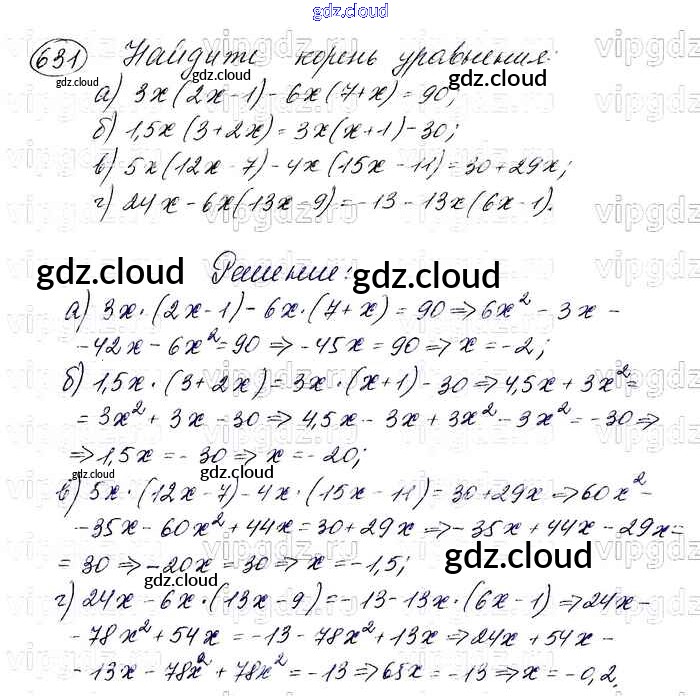 gdz.cloud
631 Найдите корень уравнения:
а) 3x(2x-1)-6x(7+x)=90;
б) 1,5x(3+2x)=3x(x+1)-30;
в) 5x(12x-7)-4x(15x-11)=30+29x;
г) 24x-6x(13x-9)=-13-13x(6x-1).
Решение:
а) 3x·(2x-1)-6x·(7+x)=90⇒6x²-3x-
-42x-6x²=90⇒-45x=90⇒x=-2;
б) 1,5x·(3+2x)=3x·(x+1)-30⇒4,5x+3x²=
=3x²+3x-30⇒4,5x-3x+3x²-3x²=-30⇒
⇒1,5x=-30⇒x=-20;
в) 5x·(12x-7)-4x·(15x-11)=30+29x⇒60x²-
-35x-60x²+44x=30+29x⇒-35x+44x-29x=
=30⇒-20x=30⇒x=-1,5;
г) 24x-6x·(13x-9)=-13-13x·(6x-1)⇒24x-
-78x²+54x=-13-78x²+13x⇒24x+54x-
-13x-78x²+78x²=-13⇒65x=-13⇒x=-0,2.